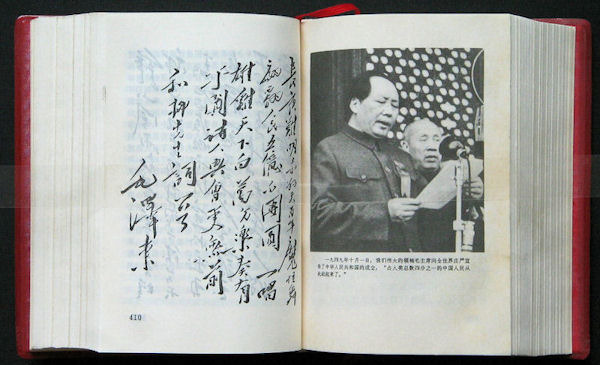 長夜難明赤縣天百年魔怪舞
翩躚人民五億不團圓一唱
雄雞天下白萬方樂奏有
于闐詩人興會更無前
和柳先生詞
毛澤東
410
一九四九年十月一日，我们伟大的领袖毛主席向全世界庄严宣
告了中华人民共和国的成立，“占人类总数四分之一的中国人民从
此站起来了。”